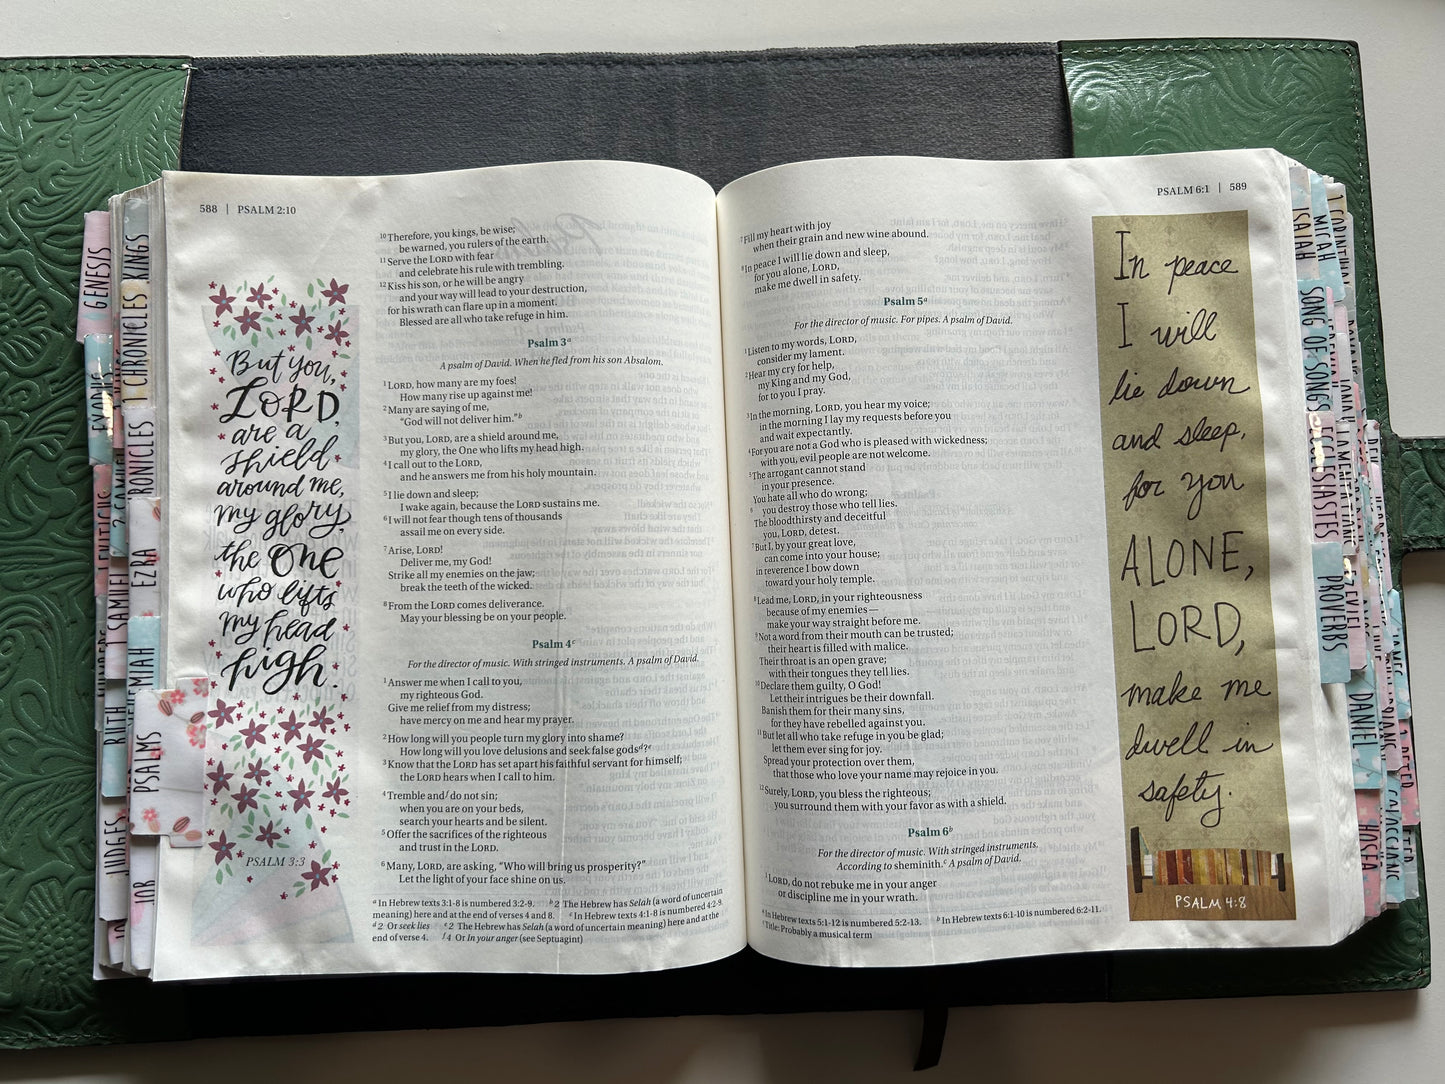 588 | PSALM 2:10
But you,
LORD,
are a
shield
around me,
my glory,
the ONE
who lifts
my head
high.
PSALM 3:3
10 Therefore, you kings, be wise;
be warned, you rulers of the earth.
11 Serve the LORD with fear
and celebrate his rule with trembling.
12 Kiss his son, or he will be angry
and your way will lead to your destruction,
for his wrath can flare up in a moment.
Blessed are all who take refuge in him.
Psalm 3a
A psalm of David. When he fled from his son Absalom.
1 LORD, how many are my foes!
How many rise up against me!
2 Many are saying of me,
“God will not deliver him.”b
3 But you, LORD, are a shield around me,
my glory, the One who lifts my head high.
4 I call out to the LORD,
and he answers me from his holy mountain.
5 I lie down and sleep;
I wake again, because the LORD sustains me.
6 I will not fear though tens of thousands
assail me on every side.
7 Arise, LORD!
Deliver me, my God!
Strike all my enemies on the jaw;
break the teeth of the wicked.
8 From the LORD comes deliverance.
May your blessing be on your people.
Psalm 4c
For the director of music. With stringed instruments. A psalm of David.
1 Answer me when I call to you,
my righteous God.
Give me relief from my distress;
have mercy on me and hear my prayer.
2 How long will you people turn my glory into shame?
How long will you love delusions and seek false godsd?e
3 Know that the LORD has set apart his faithful servant for himself;
the LORD hears when I call to him.
4 Tremble andf do not sin;
when you are on your beds,
search your hearts and be silent.
5 Offer the sacrifices of the righteous
and trust in the LORD.
6 Many, LORD, are asking, “Who will bring us prosperity?”
Let the light of your face shine on us.
a In Hebrew texts 3:1-8 is numbered 3:2-9. b 2 The Hebrew has Selah (a word of uncertain
meaning) here and at the end of verses 4 and 8. c In Hebrew texts 4:1-8 is numbered 4:2-9.
d 2 Or seek lies e 2 The Hebrew has Selah (a word of uncertain meaning) here and at the
end of verse 4. f 4 Or In your anger (see Septuagint)
PSALM 6:1 | 589
7 Fill my heart with joy
when their grain and new wine abound.
8 In peace I will lie down and sleep,
for you alone, LORD,
make me dwell in safety.
Psalm 5a
For the director of music. For pipes. A psalm of David.
1 Listen to my words, LORD,
consider my lament.
2 Hear my cry for help,
my King and my God,
for to you I pray.
3 In the morning, LORD, you hear my voice;
in the morning I lay my requests before you
and wait expectantly.
4 For you are not a God who is pleased with wickedness;
with you, evil people are not welcome.
5 The arrogant cannot stand
in your presence.
You hate all who do wrong;
6 you destroy those who tell lies.
The bloodthirsty and deceitful
you, LORD, detest.
7 But I, by your great love,
can come into your house;
in reverence I bow down
toward your holy temple.
8 Lead me, LORD, in your righteousness
because of my enemies—
make your way straight before me.
9 Not a word from their mouth can be trusted;
their heart is filled with malice.
Their throat is an open grave;
with their tongues they tell lies.
10 Declare them guilty, O God!
Let their intrigues be their downfall.
Banish them for their many sins,
for they have rebelled against you.
11 But let all who take refuge in you be glad;
let them ever sing for joy.
Spread your protection over them,
that those who love your name may rejoice in you.
12 Surely, LORD, you bless the righteous;
you surround them with your favor as with a shield.
Psalm 6b
For the director of music. With stringed instruments.
According to sheminith.c A psalm of David.
1 LORD, do not rebuke me in your anger
or discipline me in your wrath.
a In Hebrew texts 5:1-12 is numbered 5:2-13. b In Hebrew texts 6:1-10 is numbered 6:2-11.
c Title: Probably a musical term
In peace
I will
lie down
and sleep,
for you
ALONE,
LORD,
make me
dwell in
safety.
PSALM 4:8
GENESIS
EXODUS
LEVITICUS
NUMBERS
JUDGES
RUTH
2 SAMUEL
KINGS
1 CHRONICLES
RONICLES
EZRA
NEHEMIAH
JOB
PSALMS
PROVERBS
ECCLESIASTES
SONG OF SONGS
ISAIAH
EZEKIEL
DANIEL
HOSEA
MICAH
JAMES
1 PETER